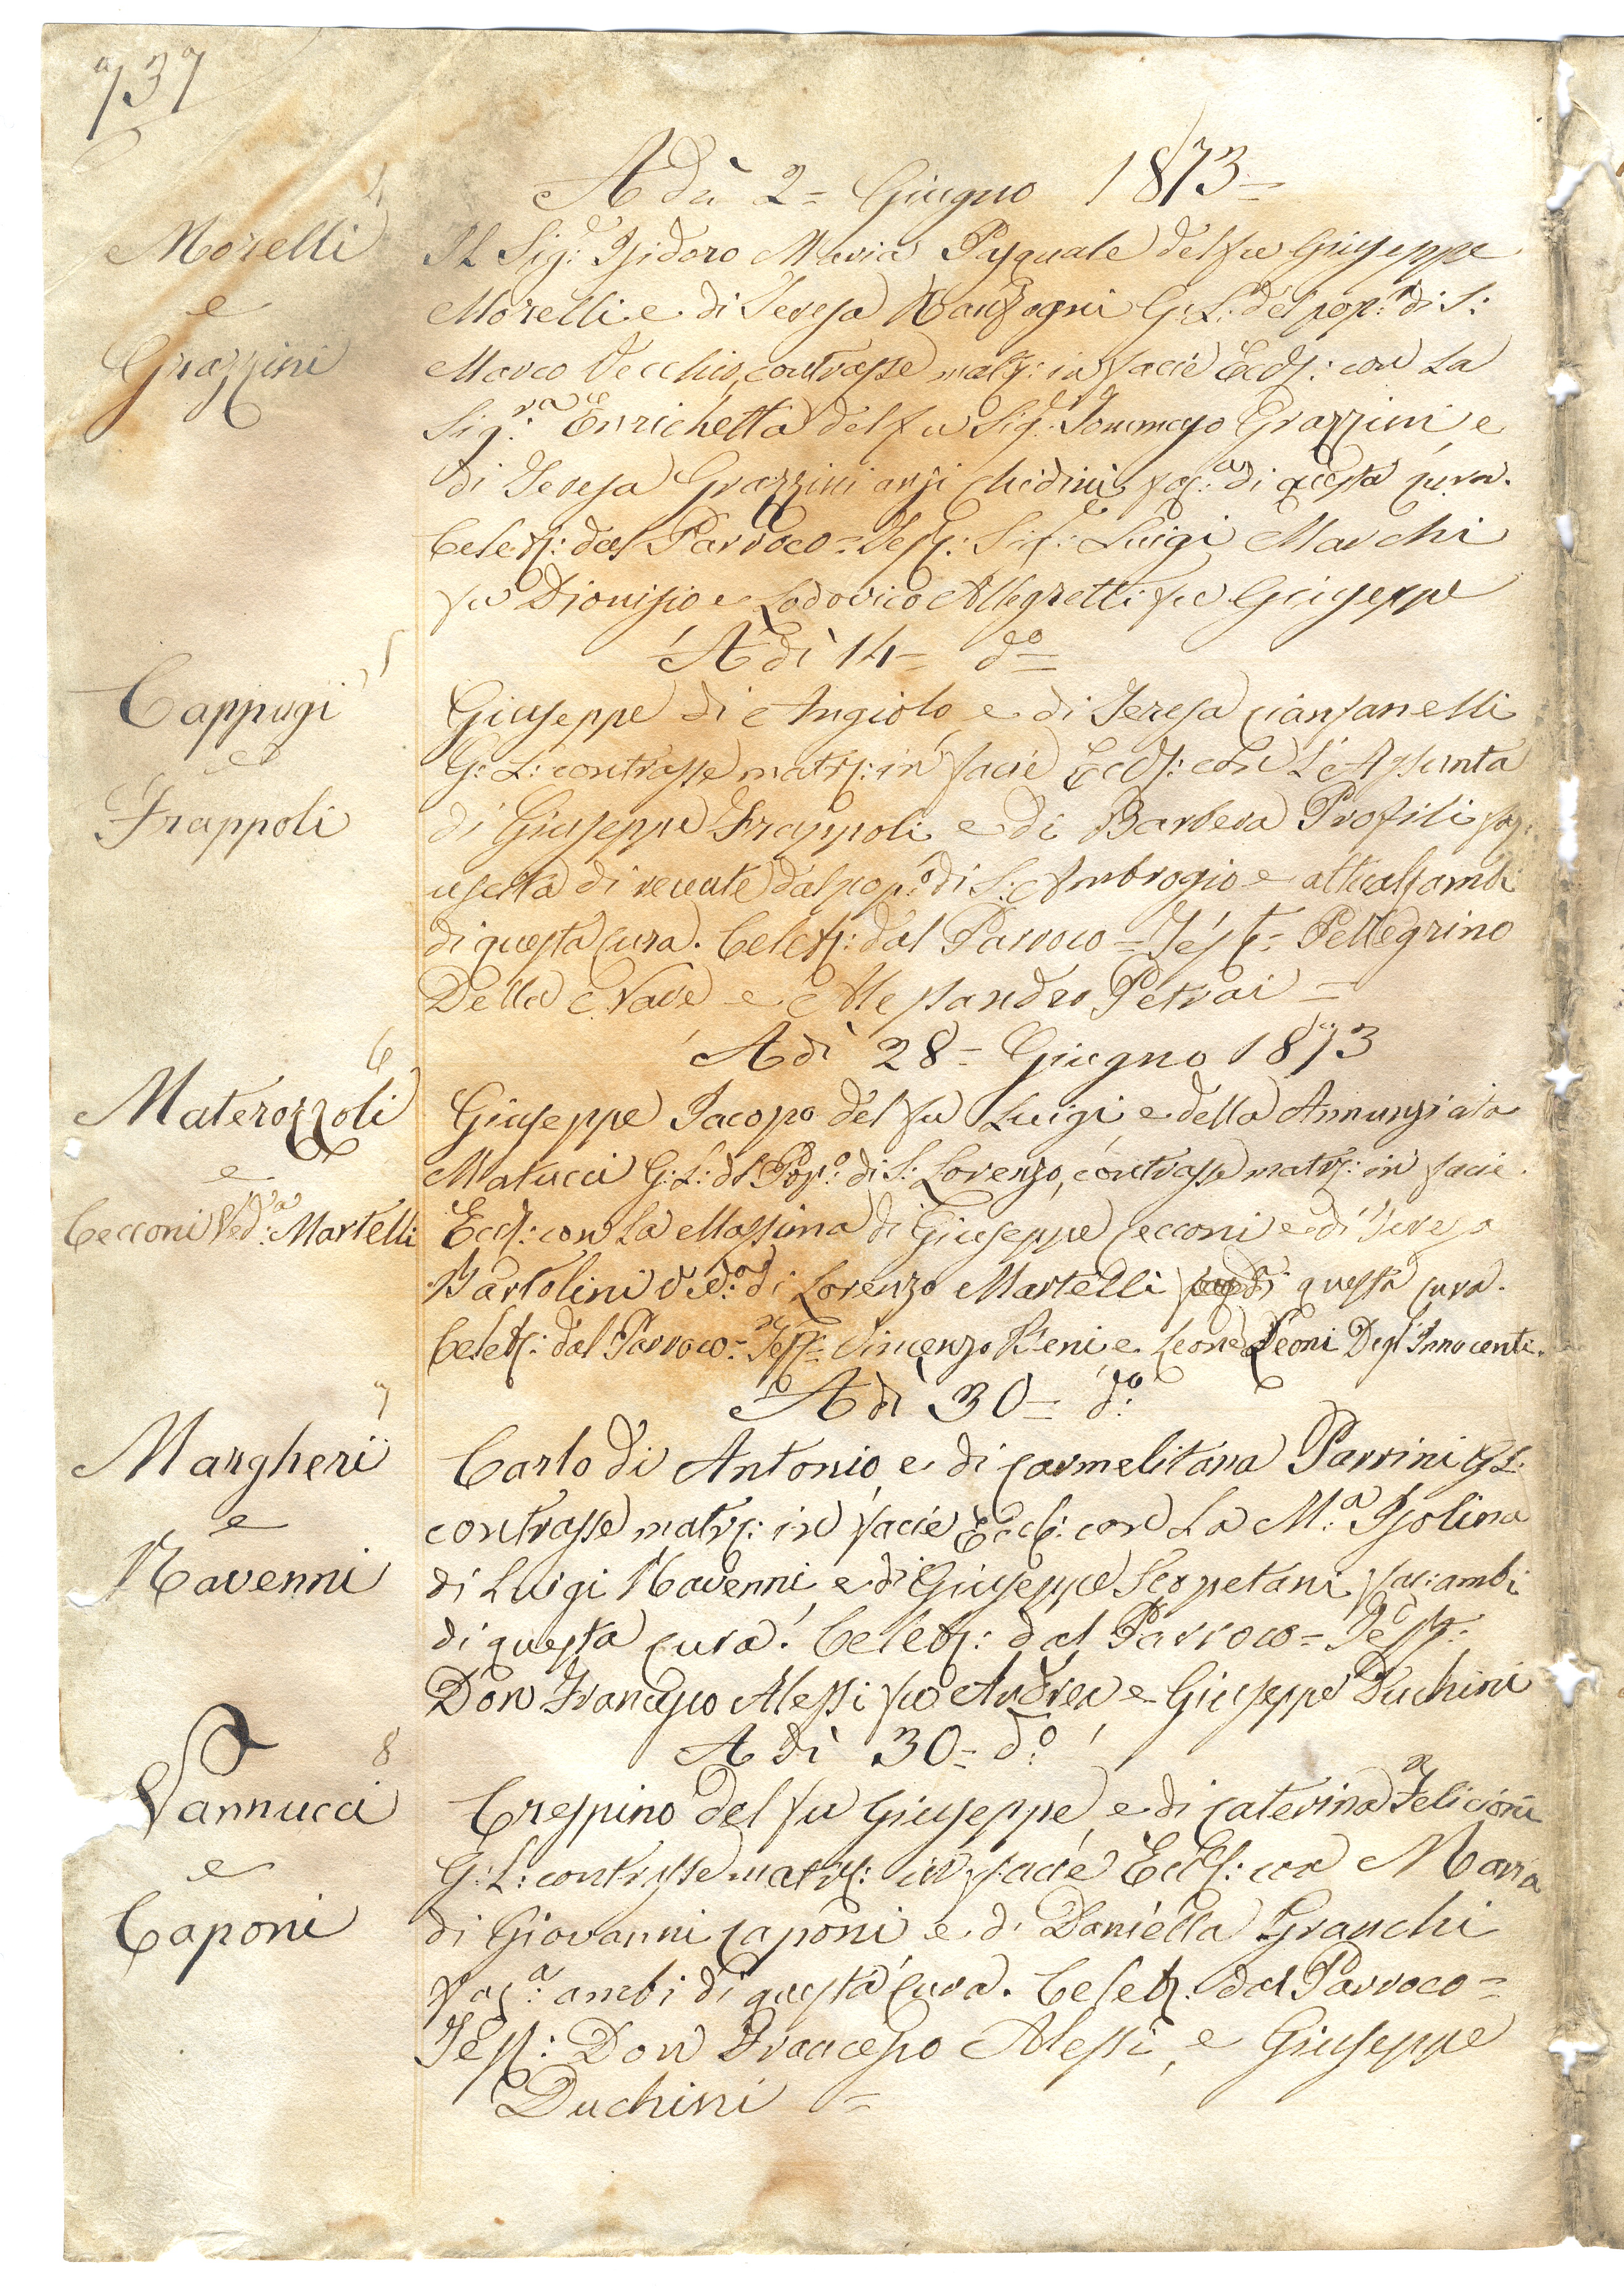 737
A dì 2= Giugno 1873=
4
Morelli
e
Grazzini
Il Sig: Isidoro Maria Pasquale del fu Giuseppe
Morelli e di Teresa G: L: del pop:º di S:
Marco Vecchio, contrasse matr: in facie Eccl: con la
Sig:ra Enrichetta del fu Sig: Tommaso Grazzini e
di Teresa Grazzini anzi Chidini, fac: di questa cura.
Celeb: dal Parroco = Test: Sig: Luigi Marchi
fu Dionisio e Lodovico Allegretti fu Giuseppe
A dì 14= dº=
5
Cappugi
e
Frappoli
Giuseppe di Angiolo, e di Teresa Cianfanelli
G: L: contrasse matr: in facie Eccl: con L'Assunta
di Giuseppe Frappoli e di Barbera Profili fac:
uscita di recente dal pop:º di S: Ambrogio e attual: ambi
di questa cura. Celeb: dal Parroco = Test= Pellegrino
Della Nave e Alessandro Petrai =
A dì 28= Giugno 1873
6
Materozzoli
e
Cecconi Ved:a Martelli
Giuseppe Jacopo del fu Luigi, e della Annunziata
Matucci G: L: del Pop:º di S: Lorenzo, contrasse matr: in facie
Eccl: con La Massima di Giuseppe Cecconi e di Teresa
Bartolini Ved:a di Lorenzo Martelli questa cura.
Celeb: dal Parroco = Test= Vincenzo Beni e Leone Leoni Degl'Innocenti.
A dì 30= dº:
7
Margheri
e
Ravenni
Carlo di Antonio, e di Carmelitana Parrini G L:
contrasse matr: in facie Eccl: con La M:a Isolina
di Luigi Ravenni, e di Giuseppe Scopetani fac: ambi
di questa cura. Celeb: dal Parroco = Test=
Don Francesco Alessi fu Andrea e Giuseppe Duchini
A dì 30= dº:
8
Vannucci
e
Caponi
Crespino del fu Giuseppe, e di Caterina Felicioni
G: L: contrasse matr: in facie Eccl: con Maria
di Giovanni Caponi e di Daniella Granchi
fac:a ambi di questa cura. Celeb: dal Parroco =
Test: Don Francesco Alessi, e Giuseppe
Duchini =